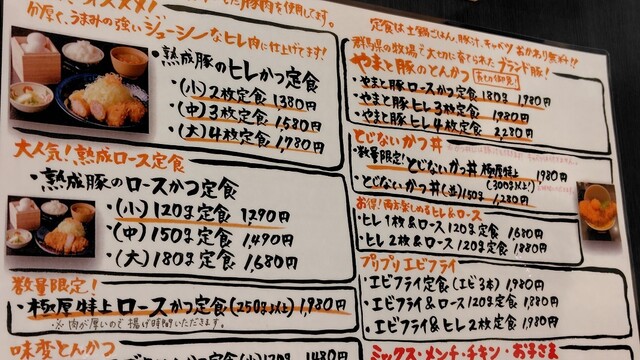 豚肉を使用してます。
分厚く、うまみの強いジューシーなヒレ肉に仕上げてます!
・熟成豚のヒレかつ定食
・(小)2枚定食 1380円
・(中)3枚定食 1,580円
・(大)4枚定食 1,780円
大人気!熟成ロース定食
・熟成豚のロースかつ定食
・(小)120g定食 1,290円
・(中)150g定食 1,490円
・(大)180g定食 1,680円
数量限定!
・極厚特上ロースかつ定食(250g以上)1,980円
※肉が厚いので揚げ時間いただきます。
味変とんかつ
定食は土鍋ごはん、豚汁、キャベツおかわり無料!!
群馬県の牧場で大切に育てられたブランド豚!
やまと豚のとんかつ
・やまと豚ロースかつ定食180g 1,980円
・やまと豚ヒレ3枚定食 1,980円
・やまと豚ヒレ4枚定食 2,280円
とじないかつ丼
・数量限定!とじないかつ丼極厚特上 1,980円
(300g以上!)
・とじないかつ丼(並)150g 1,280円
お得!両方楽しめるヒレ&ロース
・ヒレ1枚&ロース120g定食 1,680円
・ヒレ2枚&ロース120g定食 1,880円
プリプリエビフライ
・エビフライ定食(エビ3本) 1,980円
・エビフライ&ロース120g定食 1,880円
・エビフライ&ヒレ2枚定食 1,980円
ミックス・メンチ・チキン・お子さま